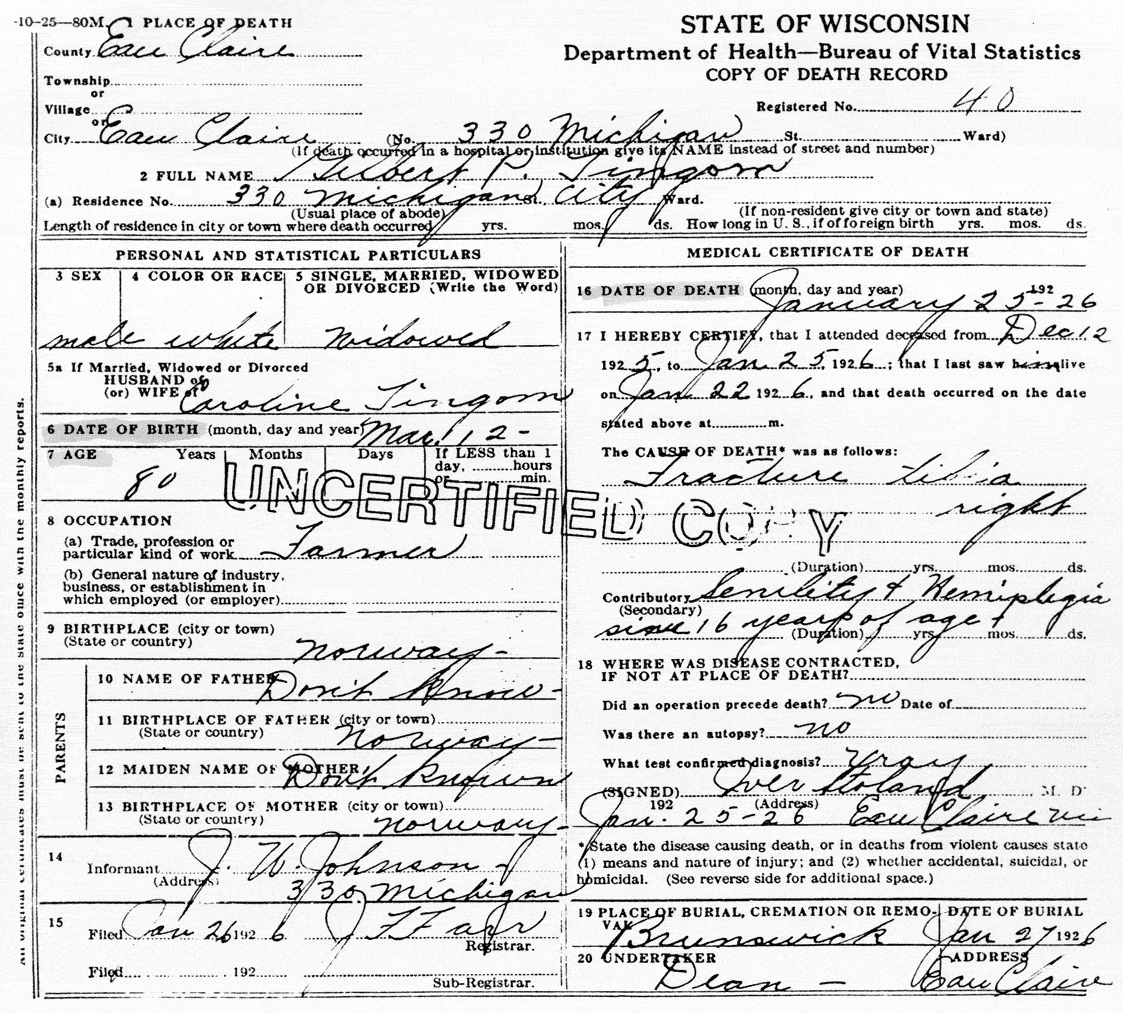 10-25—80M. 1 PLACE OF DEATH
County Eau Claire
Township
or
Village
or
City Eau Claire (No. 330 Michigan St. Ward)
(If death occurred in a hospital or institution give its NAME instead of street and number)
STATE OF WISCONSIN
Department of Health—Bureau of Vital Statistics
COPY OF DEATH RECORD
Registered No. 40
2 FULL NAME Gilbert P. Tingom
(a) Residence No. 330 Michigan St. City Ward.
(Usual place of abode) (If non-resident give city or town and state)
Length of residence in city or town where death occurred yrs. mos. ds. How long in U. S., if of foreign birth yrs. mos. ds.
PERSONAL AND STATISTICAL PARTICULARS
3 SEX
male
4 COLOR OR RACE
white
5 SINGLE, MARRIED, WIDOWED
OR DIVORCED (Write the Word)
Widowed
5a If Married, Widowed or Divorced
HUSBAND of
(or) WIFE of Caroline Tingom
6 DATE OF BIRTH (month, day and year) Mar. 12 -
7 AGE Years Months Days If LESS than 1
day, hours
or min.
80
8 OCCUPATION
(a) Trade, profession or
particular kind of work Farmer
(b) General nature of industry,
business, or establishment in
which employed (or employer)
9 BIRTHPLACE (city or town)
(State or country) Norway -
PARENTS
10 NAME OF FATHER Don't know -
11 BIRTHPLACE OF FATHER (city or town)
(State or country) Norway -
12 MAIDEN NAME OF MOTHER Don't known
13 BIRTHPLACE OF MOTHER (city or town)
(State or country) Norway -
14
Informant J. W. Johnson -
(Address) 330 Michigan
15
Filed Jan 26 1926 Registrar.
Filed 192 Sub-Registrar.
MEDICAL CERTIFICATE OF DEATH
16 DATE OF DEATH (month, day and year) 192
January 25-26
17 I HEREBY CERTIFY, that I attended deceased from Dec 12
1925, to Jan. 25, 1926; that I last saw him alive
on Jan 22 1926, and that death occurred on the date
stated above at m.
The CAUSE OF DEATH* was as follows:
Fracture tibia
right
(Duration) yrs. mos. ds.
Contributory Senility & Hemiplegia
(Secondary)
since 16 years of age
(Duration) yrs. mos. ds.
18 WHERE WAS DISEASE CONTRACTED,
IF NOT AT PLACE OF DEATH?
Did an operation precede death? no Date of
Was there an autopsy? no
What test confirmed diagnosis? Xray
(SIGNED) Iver Stoland M. D
192 (Address)
Jan. 25-26 Eau Claire Wis
*State the disease causing death, or in deaths from violent causes state
(1) means and nature of injury; and (2) whether accidental, suicidal, or
homicidal. (See reverse side for additional space.)
19 PLACE OF BURIAL, CREMATION OR REMO-
VAL Brunswick
DATE OF BURIAL
Jan 27 1926
20 UNDERTAKER
Dean -
ADDRESS
Eau Claire
UNCERTIFIED COPY